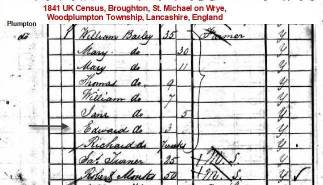 1841 UK Census, Broughton, St. Michael on Wrye,
Woodplumpton Township, Lancashire, England
Plumpton
do 1 William Bailey 35 Farmer Y
Mary do 30 Y
Mary do 11 Y
Thomas do 9 Y
William do 7 Y
Jane do 5 Y
Edward do 3 Y
Richard do Y
Jas Turner 25 M. S. Y
Robert Monks 50 M. S. Y